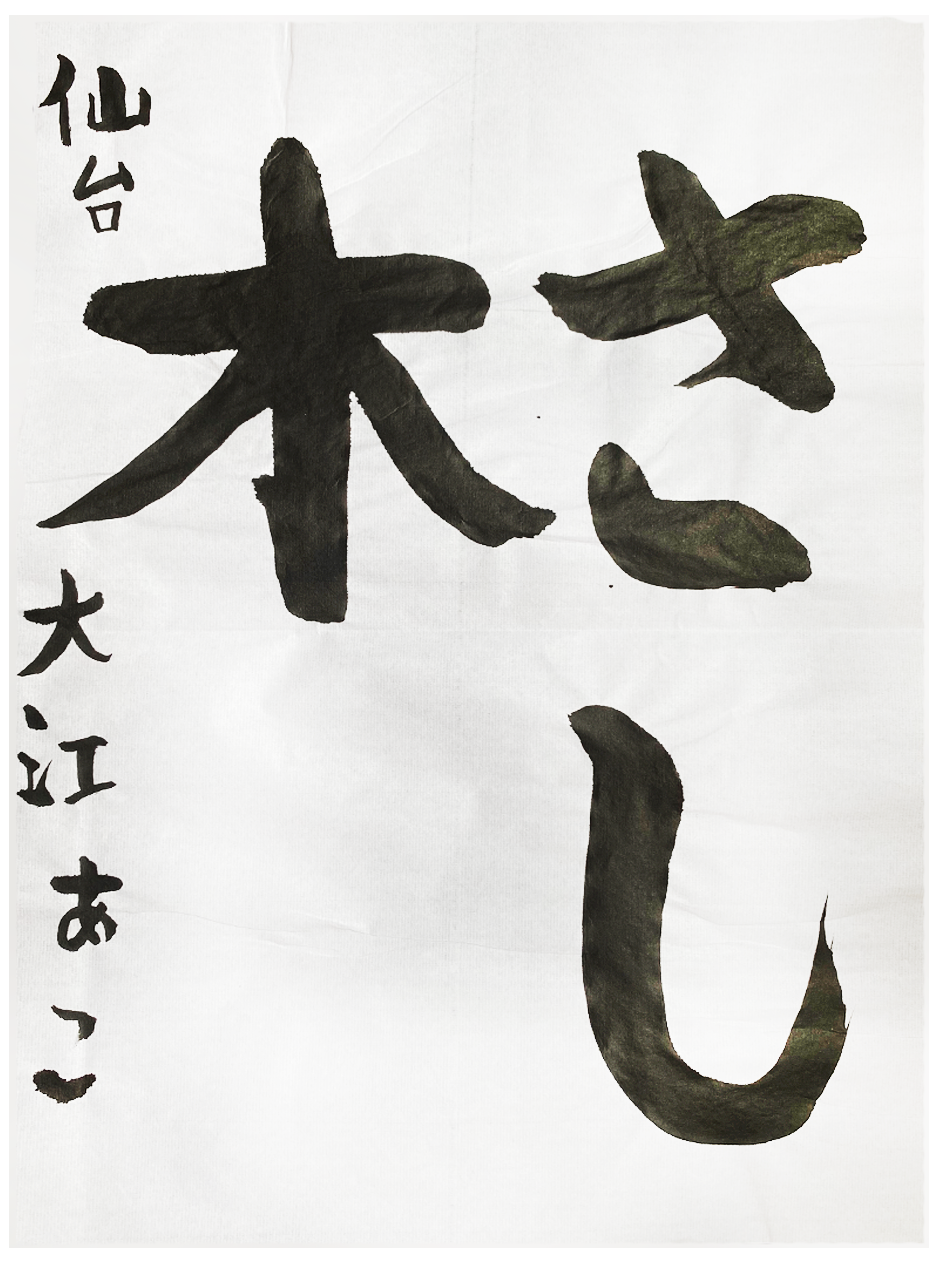 さし
木
仙台 大江あこ